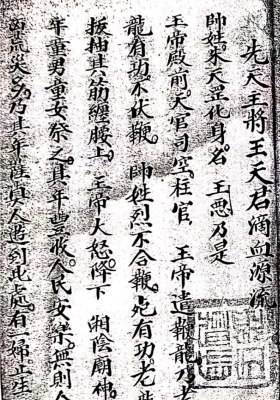 先天王將王天君滴血源流
帥姓朱天罡化身名 王惡乃是
王帝殿前天官司空柱官 王帝遣鞭龍乃
龍有功不伏鞭 帥姓烈不合鞭死有功老
扳抽其筋纏腰上王帝大怒降下 湘陰廟神
年童男童女祭之其年豐收人民安樂無則人
荒災乃其年薩真人過到此處有一婦止生